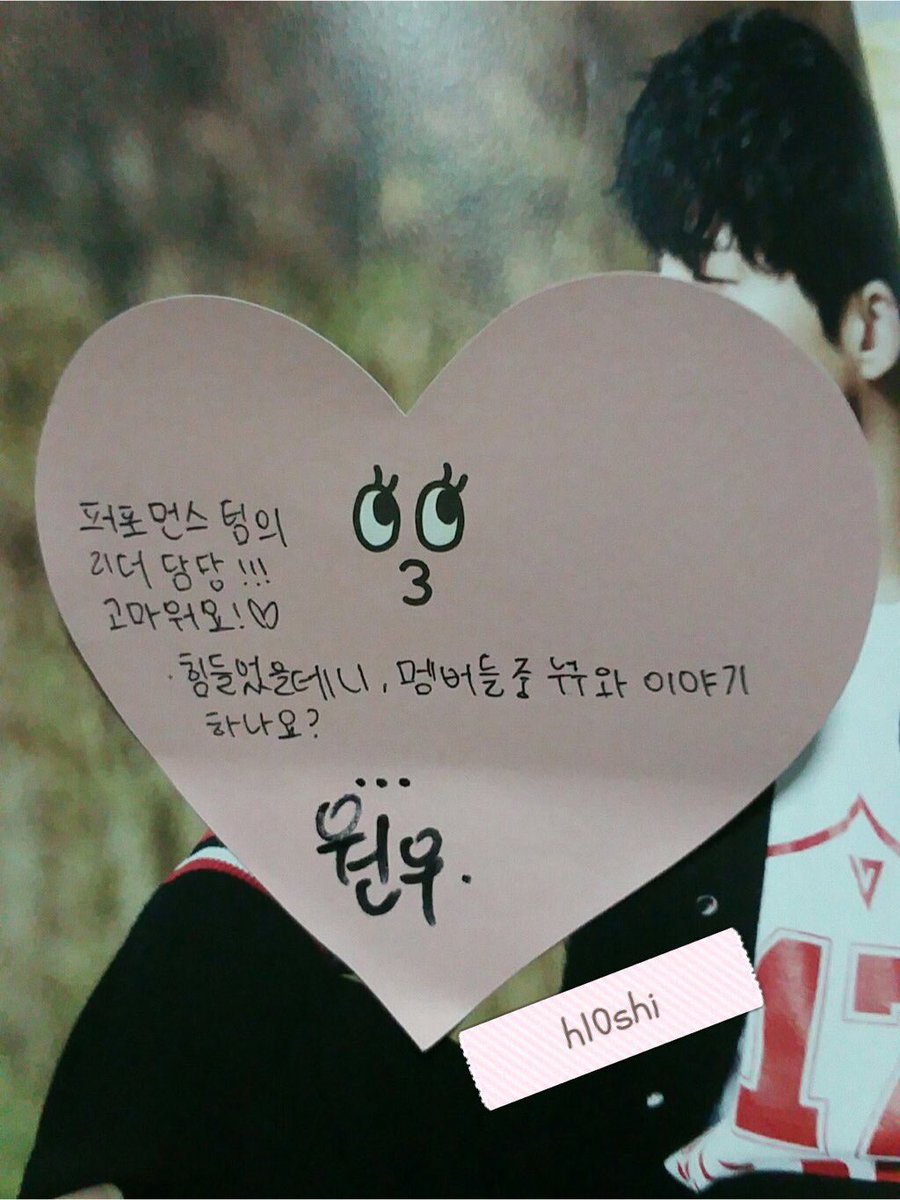 퍼포먼스 텀의
리더 담당!!!
고마워요!♡
힘들었을데니, 멤버들 중 누구와 이야기
하나요?
...
원우.
h10shi
17